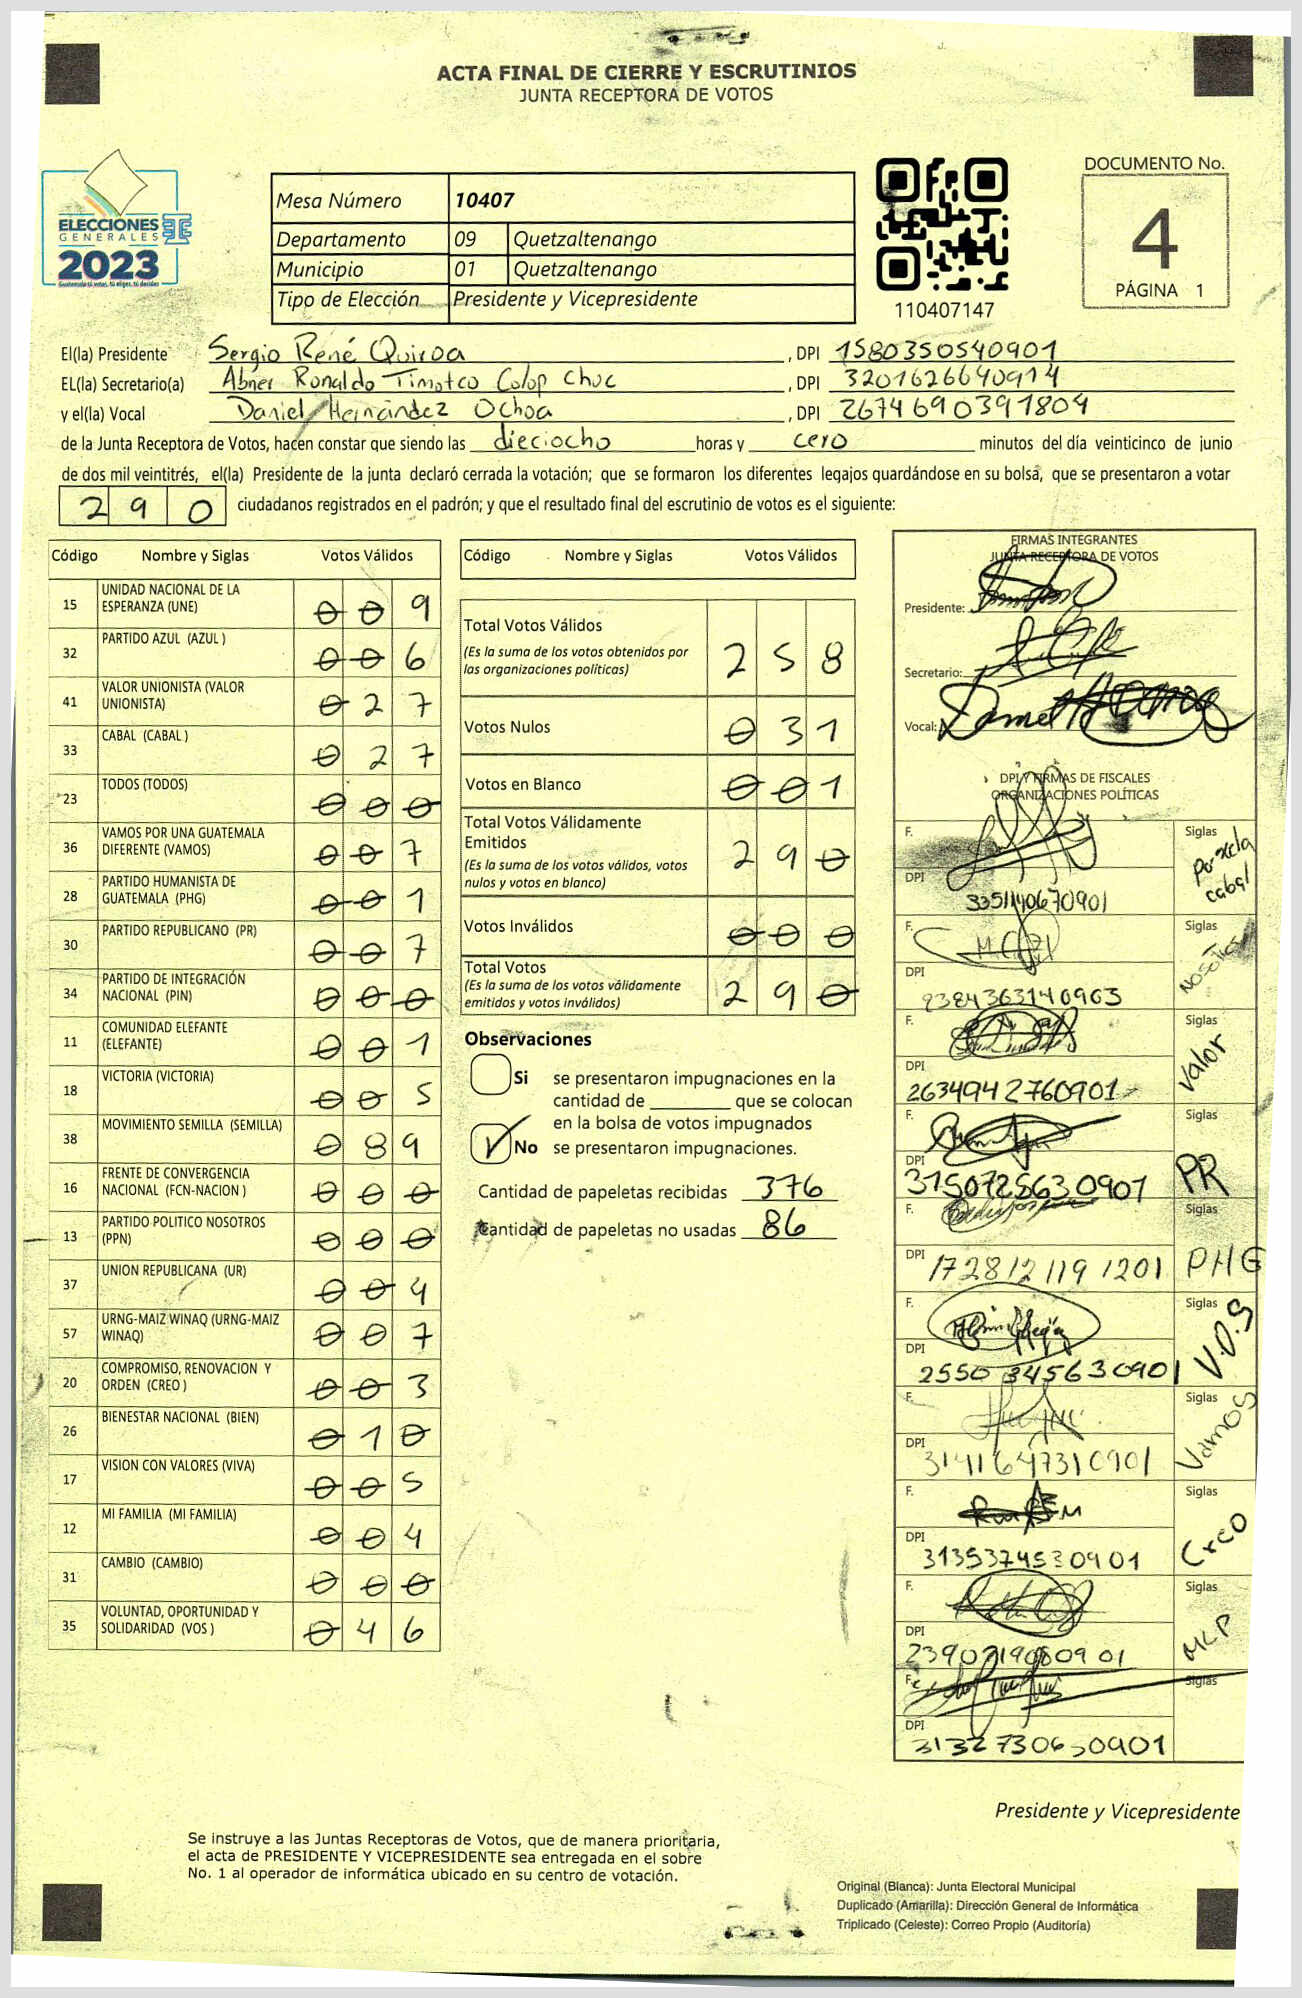 ACTA FINAL DE CIERRE Y ESCRUTINIOS
JUNTA RECEPTORA DE VOTOS
ELECCIONES
GENERALES
2023
Guatemala tú votas, tú eliges, tú decides
Mesa Número 10407
Departamento 09 Quetzaltenango
Municipio 01 Quetzaltenango
Tipo de Elección Presidente y Vicepresidente
110407147
DOCUMENTO No.
4
PÁGINA 1
El(la) Presidente Sergio René Quiroa , DPI 1580350540901
EL(la) Secretario(a) Abner Ronaldo Timoteo Colop Chuc , DPI 3201626640914
y el(la) Vocal Daniel Hernández Ochoa , DPI 2674690391804
de la Junta Receptora de Votos, hacen constar que siendo las dieciocho horas y cero minutos del día veinticinco de junio
de dos mil veintitrés, el(la) Presidente de la junta declaró cerrada la votación; que se formaron los diferentes legajos guardándose en su bolsa, que se presentaron a votar
290 ciudadanos registrados en el padrón; y que el resultado final del escrutinio de votos es el siguiente:
Código Nombre y Siglas Votos Válidos
15 UNIDAD NACIONAL DE LA ESPERANZA (UNE) 0 0 9
32 PARTIDO AZUL (AZUL ) 0 0 6
41 VALOR UNIONISTA (VALOR UNIONISTA) 0 2 7
33 CABAL (CABAL ) 0 2 7
23 TODOS (TODOS) 0 0 0
36 VAMOS POR UNA GUATEMALA DIFERENTE (VAMOS) 0 0 7
28 PARTIDO HUMANISTA DE GUATEMALA (PHG) 0 0 1
30 PARTIDO REPUBLICANO (PR) 0 0 7
34 PARTIDO DE INTEGRACIÓN NACIONAL (PIN) 0 0 0
11 COMUNIDAD ELEFANTE (ELEFANTE) 0 0 1
18 VICTORIA (VICTORIA) 0 0 5
38 MOVIMIENTO SEMILLA (SEMILLA) 0 8 9
16 FRENTE DE CONVERGENCIA NACIONAL (FCN-NACION ) 0 0 0
13 PARTIDO POLITICO NOSOTROS (PPN) 0 0 0
37 UNION REPUBLICANA (UR) 0 0 4
57 URNG-MAIZ WINAQ (URNG-MAIZ WINAQ) 0 0 7
20 COMPROMISO, RENOVACION Y ORDEN (CREO ) 0 0 3
26 BIENESTAR NACIONAL (BIEN) 0 1 0
17 VISION CON VALORES (VIVA) 0 0 5
12 MI FAMILIA (MI FAMILIA) 0 0 4
31 CAMBIO (CAMBIO) 0 0 0
35 VOLUNTAD, OPORTUNIDAD Y SOLIDARIDAD (VOS ) 0 4 6
Código Nombre y Siglas Votos Válidos
Total Votos Válidos 2 5 8
(Es la suma de los votos obtenidos por
las organizaciones políticas)
Votos Nulos 0 3 1
Votos en Blanco 0 0 1
Total Votos Válidamente
Emitidos 2 9 0
(Es la suma de los votos válidos, votos
nulos y votos en blanco)
Votos Inválidos 0 0 0
Total Votos 2 9 0
(Es la suma de los votos válidamente
emitidos y votos inválidos)
Observaciones
Si se presentaron impugnaciones en la
cantidad de ________ que se colocan
en la bolsa de votos impugnados
No se presentaron impugnaciones.
Cantidad de papeletas recibidas 376
Cantidad de papeletas no usadas 86
FIRMAS INTEGRANTES
JUNTA RECEPTORA DE VOTOS
Presidente:
Secretario:
Vocal:
DPI Y FIRMAS DE FISCALES
ORGANIZACIONES POLÍTICAS
F. Siglas
Por xela cabal
DPI 3351140670901
F. Siglas
DPI 2384363140903
F. Siglas
Valor
DPI 2634942760901
F. Siglas
PR
DPI 3150725630901
F. Siglas
DPI 1728121191201 PHG
F. Siglas
V.O.S
DPI 2550345630901
F. Siglas
Vamos
DPI 3141647310901
F. Siglas
Creo
DPI 3135374530901
F. Siglas
MLP
DPI 2390219080901
F. Siglas
DPI 3132730650901
Presidente y Vicepresidente
Se instruye a las Juntas Receptoras de Votos, que de manera prioritaria,
el acta de PRESIDENTE Y VICEPRESIDENTE sea entregada en el sobre
No. 1 al operador de informática ubicado en su centro de votación.
Original (Blanca): Junta Electoral Municipal
Duplicado (Amarilla): Dirección General de Informática
Triplicado (Celeste): Correo Propio (Auditoría)